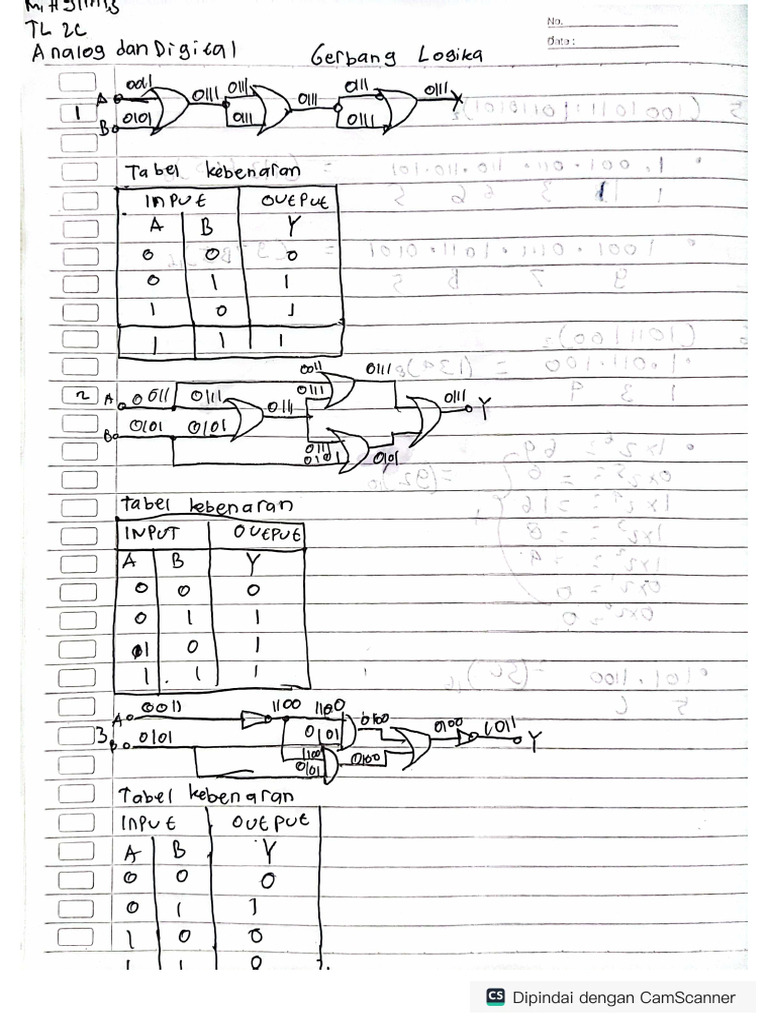 TL 2C
Analog dan Digital
Gerbang Logika
No.
Date:
1
A 001 0111 0111 0111 0111 Y
B 0101 0111 0111
Tabel kebenaran
INPUT OUTPUT
A B Y
0 0 0
0 1 1
1 0 1
1 1 1
2 A 0011 0111 0011 0111
0111 0111 0111 Y
B 0101 0101 0111
0101 0101
Tabel kebenaran
INPUT OUTPUT
A B Y
0 0 0
0 1 1
1 0 1
1 1 1
3 A 0011 1100 1100 0100 0100 1011 Y
B 0101 0101
1100 0100
0101
Tabel kebenaran
INPUT OUTPUT
A B Y
0 0 0
0 1 1
1 0 0
1 1 0
CS Dipindai dengan CamScanner